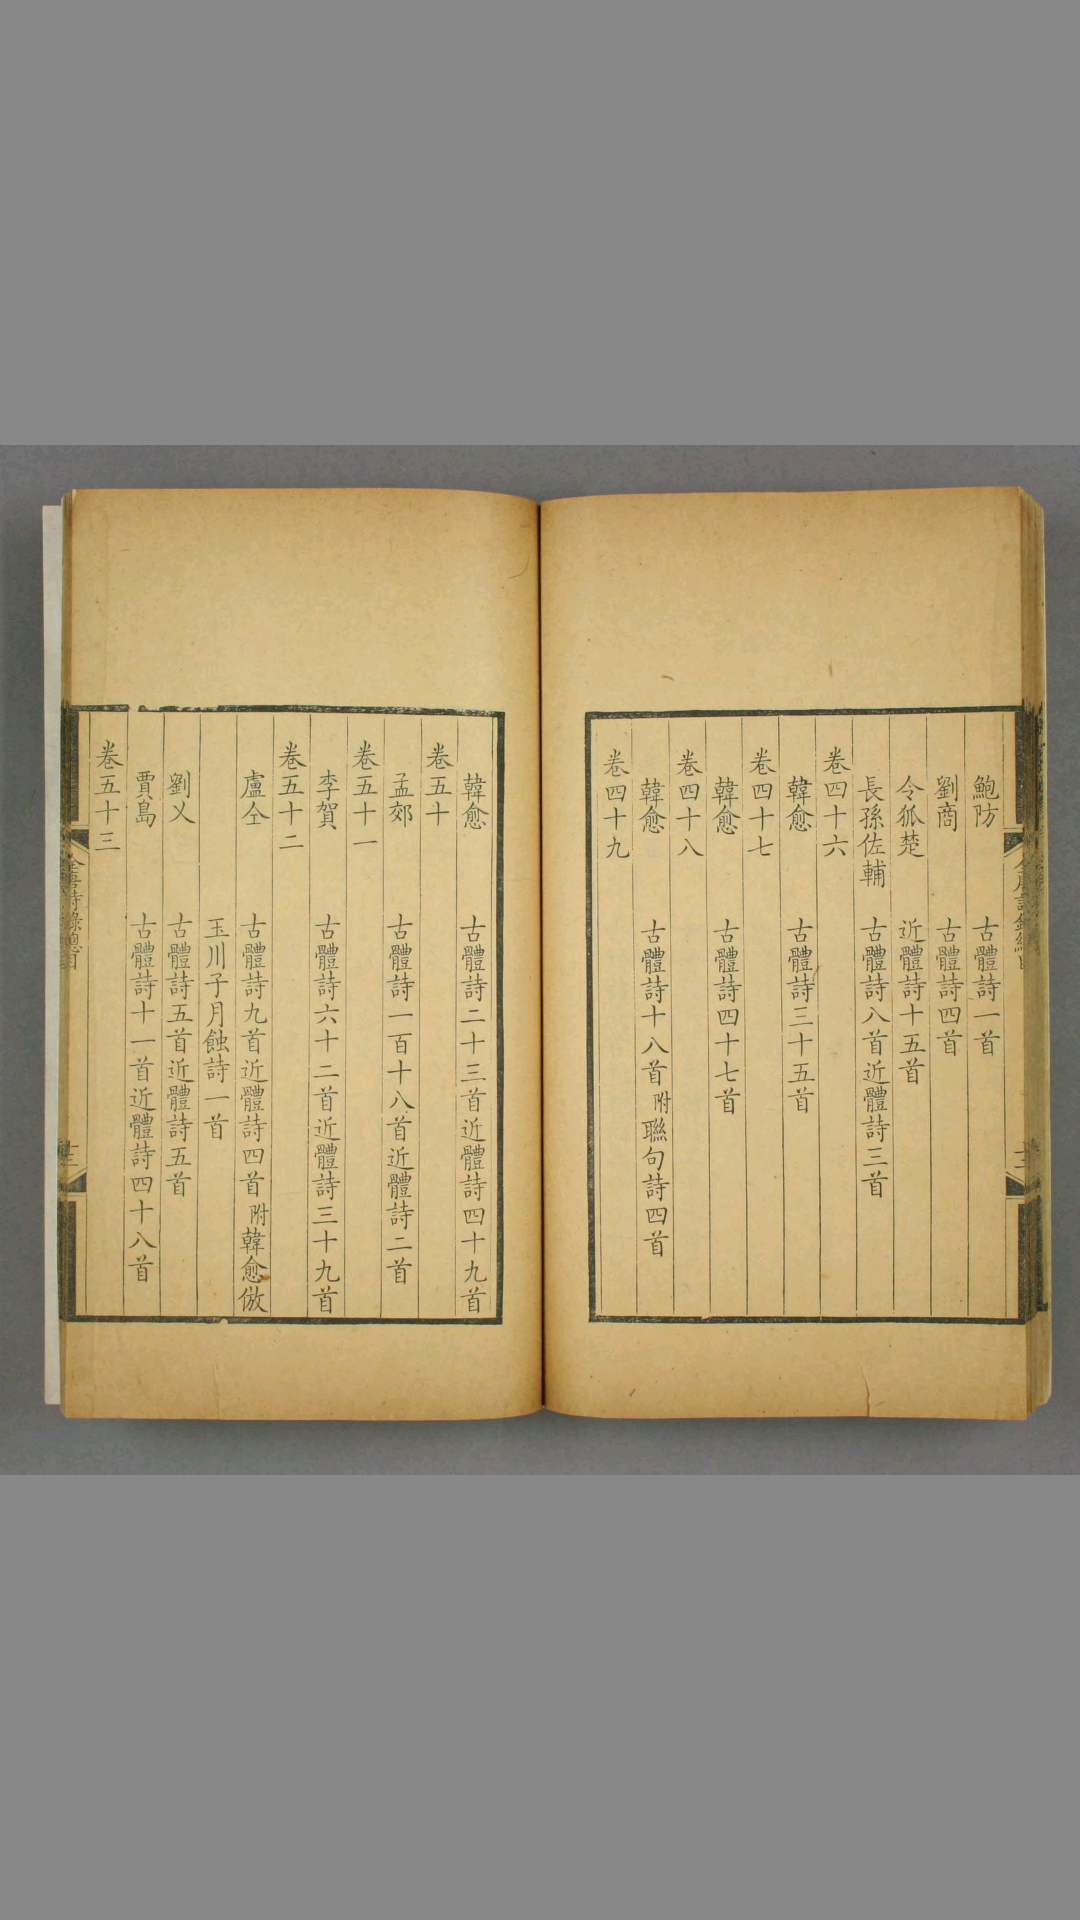 鮑防 古體詩一首
劉商 古體詩四首
令狐楚 近體詩十五首
長孫佐輔 古體詩八首近體詩三首
卷四十六
韓愈 古體詩三十五首
卷四十七
韓愈 古體詩四十七首
卷四十八
韓愈 古體詩十八首附聯句詩四首
卷四十九
韓愈 古體詩二十三首近體詩四十九首
卷五十
孟郊 古體詩一百十八首近體詩二首
卷五十一
李賀 古體詩六十二首近體詩三十九首
卷五十二
盧仝 古體詩九首近體詩四首附韓愈倣
玉川子月蝕詩一首
劉乂 古體詩五首近體詩五首
賈島 古體詩十一首近體詩四十八首
卷五十三
全唐詩錄總目